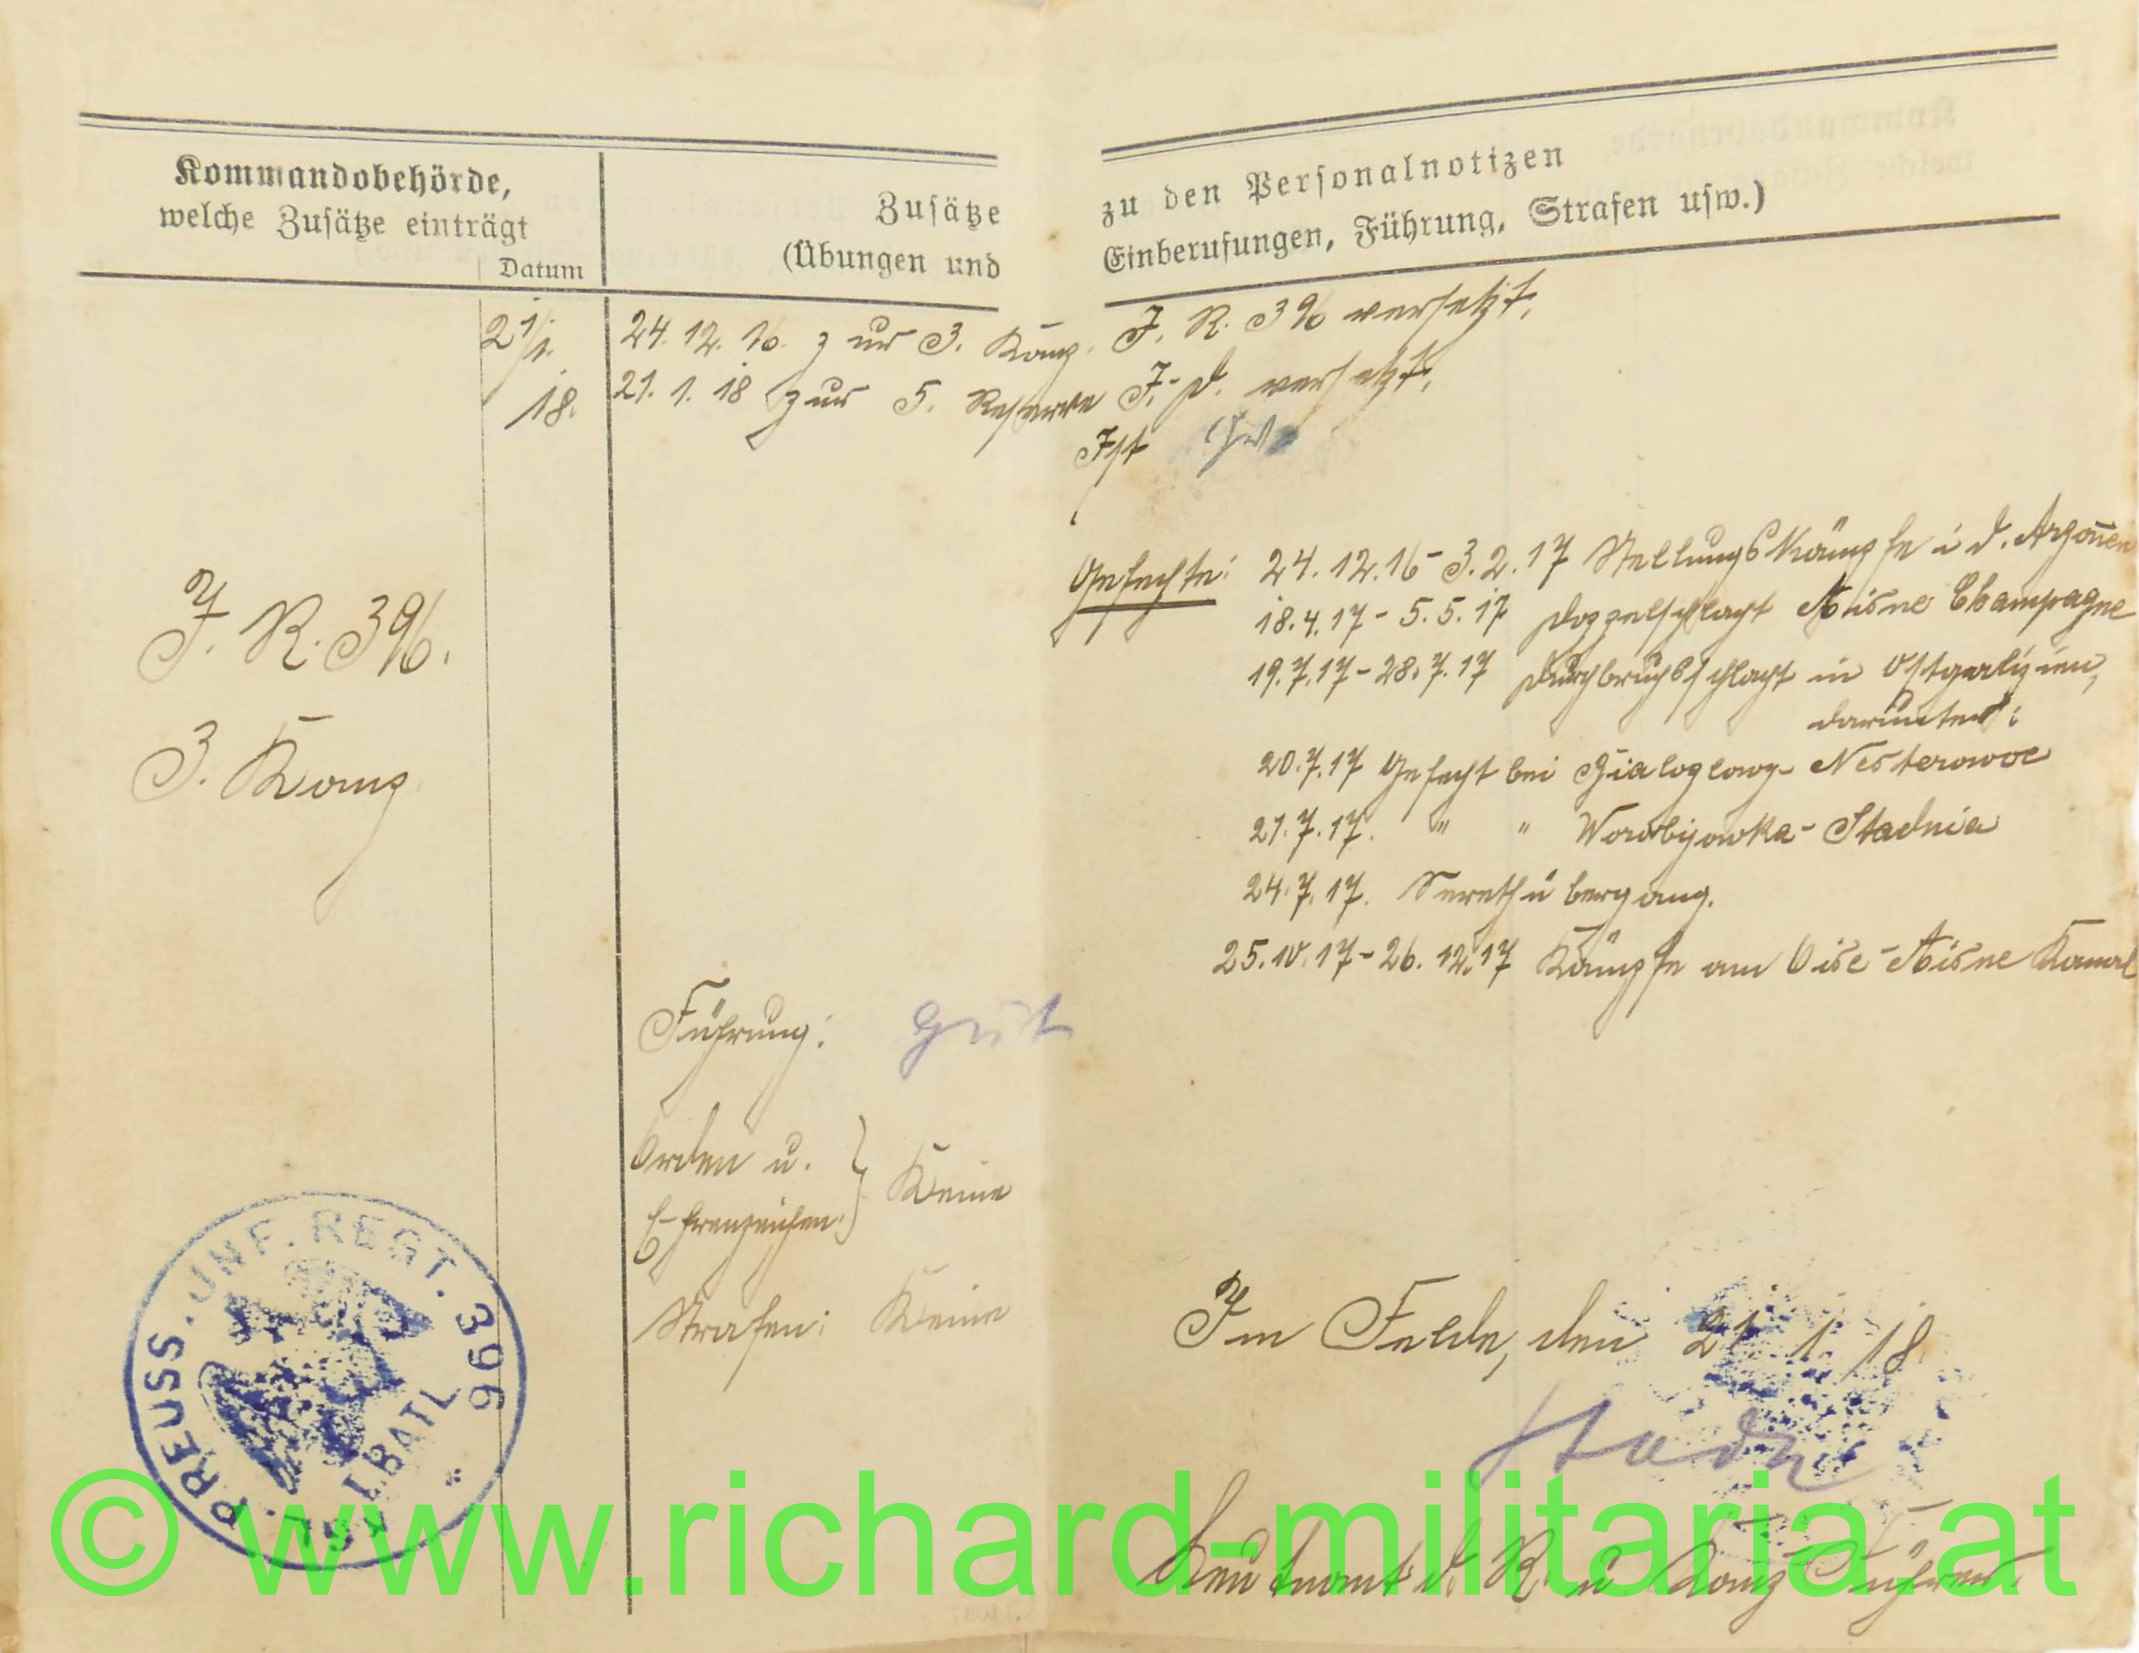 Kommandobehörde,
welche Zusätze einträgt
Datum
Zusätze zu den Personalnotizen
(Übungen und Einberufungen, Führung, Strafen usw.)
21/1. 24.12.16. zur 3. Komp. J. R. 396 versetzt.
18. 21.1.18 zur 5. Reserve J.-D. versetzt.
Ist
J. R. 396.
3. Komp.
Gefechte: 24.12.16-3.2.17 Stellungskämpfe i. d. Argonnen
18.4.17-5.5.17 Doppelschlacht Aisne Champagne
19.7.17-28.7.17 Durchbruchsschlacht in Ostgalizien,
darunter:
20.7.17 Gefecht bei Bialoglowy-Nesterowce
21.7.17. " " Worobijowka-Stadnia
24.7.17. Serethübergang.
25.10.17-26.12.17 Kämpfe am Oise-Aisne Kanal
Führung: gut
Orden u.
Ehrenzeichen: } Keine
Strafen: Keine
KGL. PREUSS. INF. REGT. 396
I. BATL.
Im Felde, den 21.1.18.
Leutnant d. R. u. Komp. Führer.
© www.richard-militaria.at